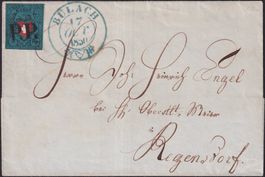 BÜLACH
17
OCT
1850
Herrn Joh: Heinrich Engel
bei Hr. Oberstlt. Meier
in
Regensdorf.